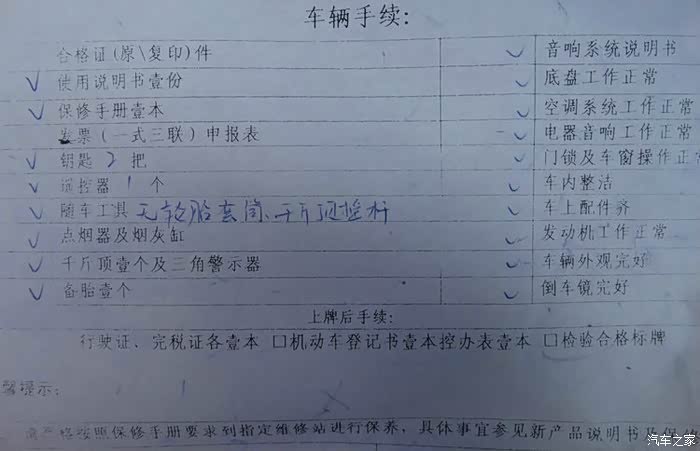 车辆手续:
合格证(原\复印)件 ✓ 音响系统说明书
✓ 使用说明书壹份 ✓ 底盘工作正常
✓ 保修手册壹本 ✓ 空调系统工作正常
发票(一式三联)申报表 ✓ 电器音响工作正常
✓ 钥匙 2 把 ✓ 门锁及车窗操作正
✓ 遥控器 1 个 ✓ 车内整洁
✓ 随车工具 无轮胎套筒、千斤顶摇杆 ✓ 车上配件齐
✓ 点烟器及烟灰缸 ✓ 发动机工作正常
✓ 千斤顶壹个及三角警示器 ✓ 车辆外观完好
✓ 备胎壹个 ✓ 倒车镜完好
上牌后手续:
行驶证、完税证各壹本 □机动车登记书壹本控办表壹本 □检验合格标牌
馨提示:
严格按照保修手册要求到指定维修站进行保养, 具体事宜参见新产品说明书及保修
汽车之家